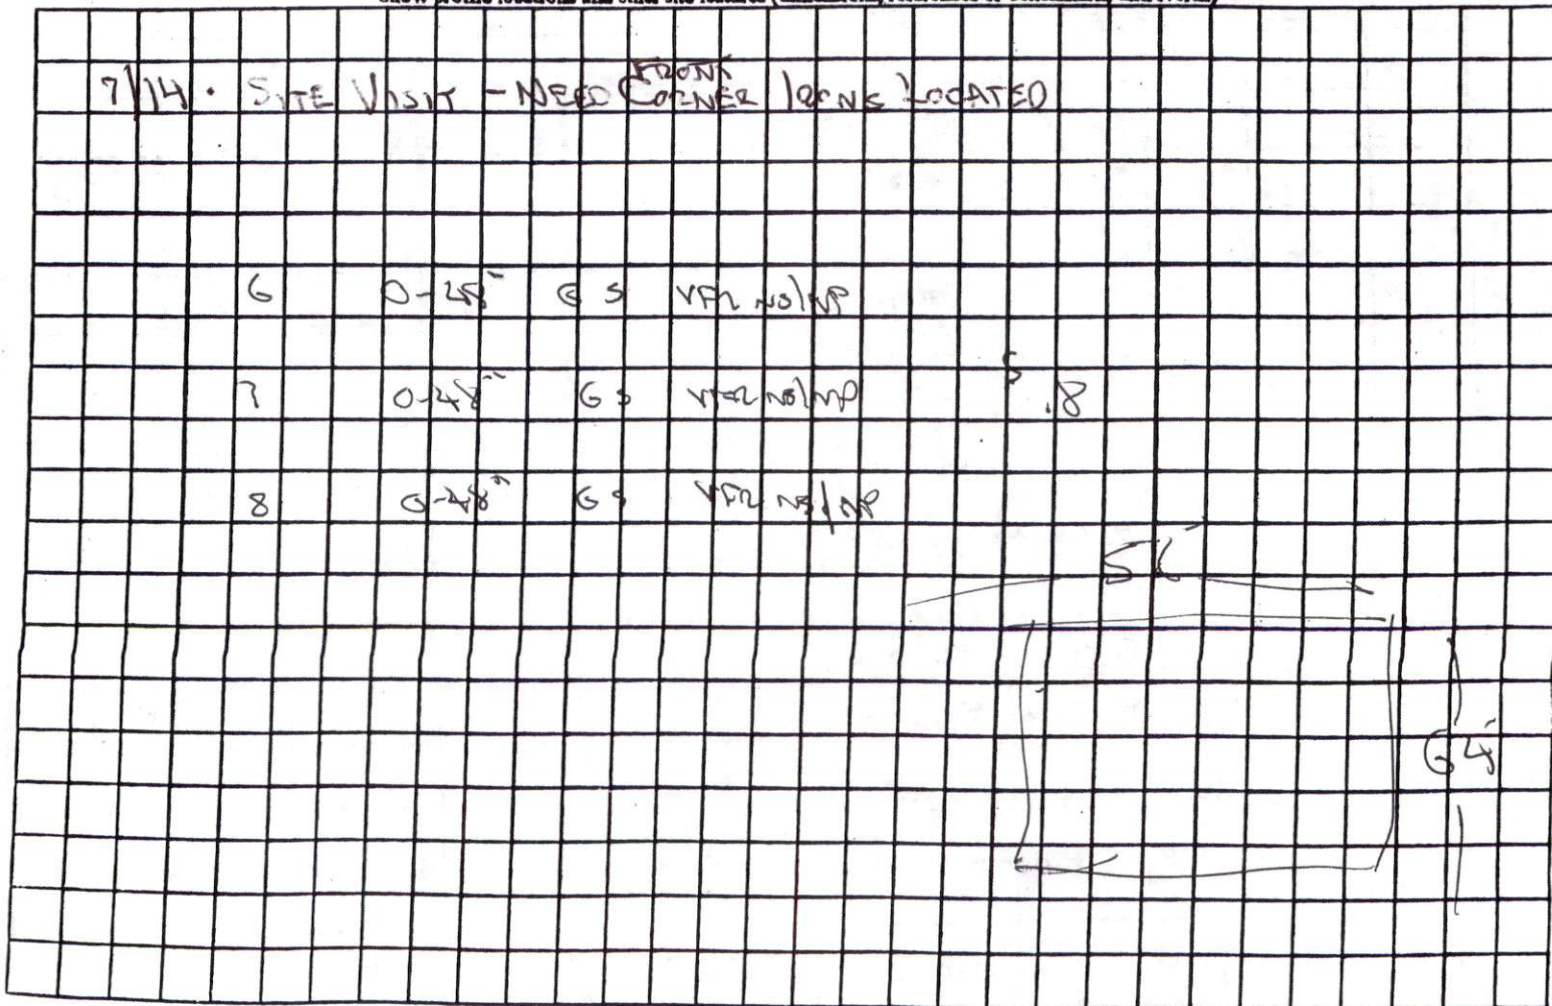 7/14. SITE VISIT - NEED FRONT CORNER IRONS LOCATED
6 0-48" GS VFR NS/NP
7 0-48" GS VFR NS/NP
S .8
8 0-48" GS VFR NS/NP
64'